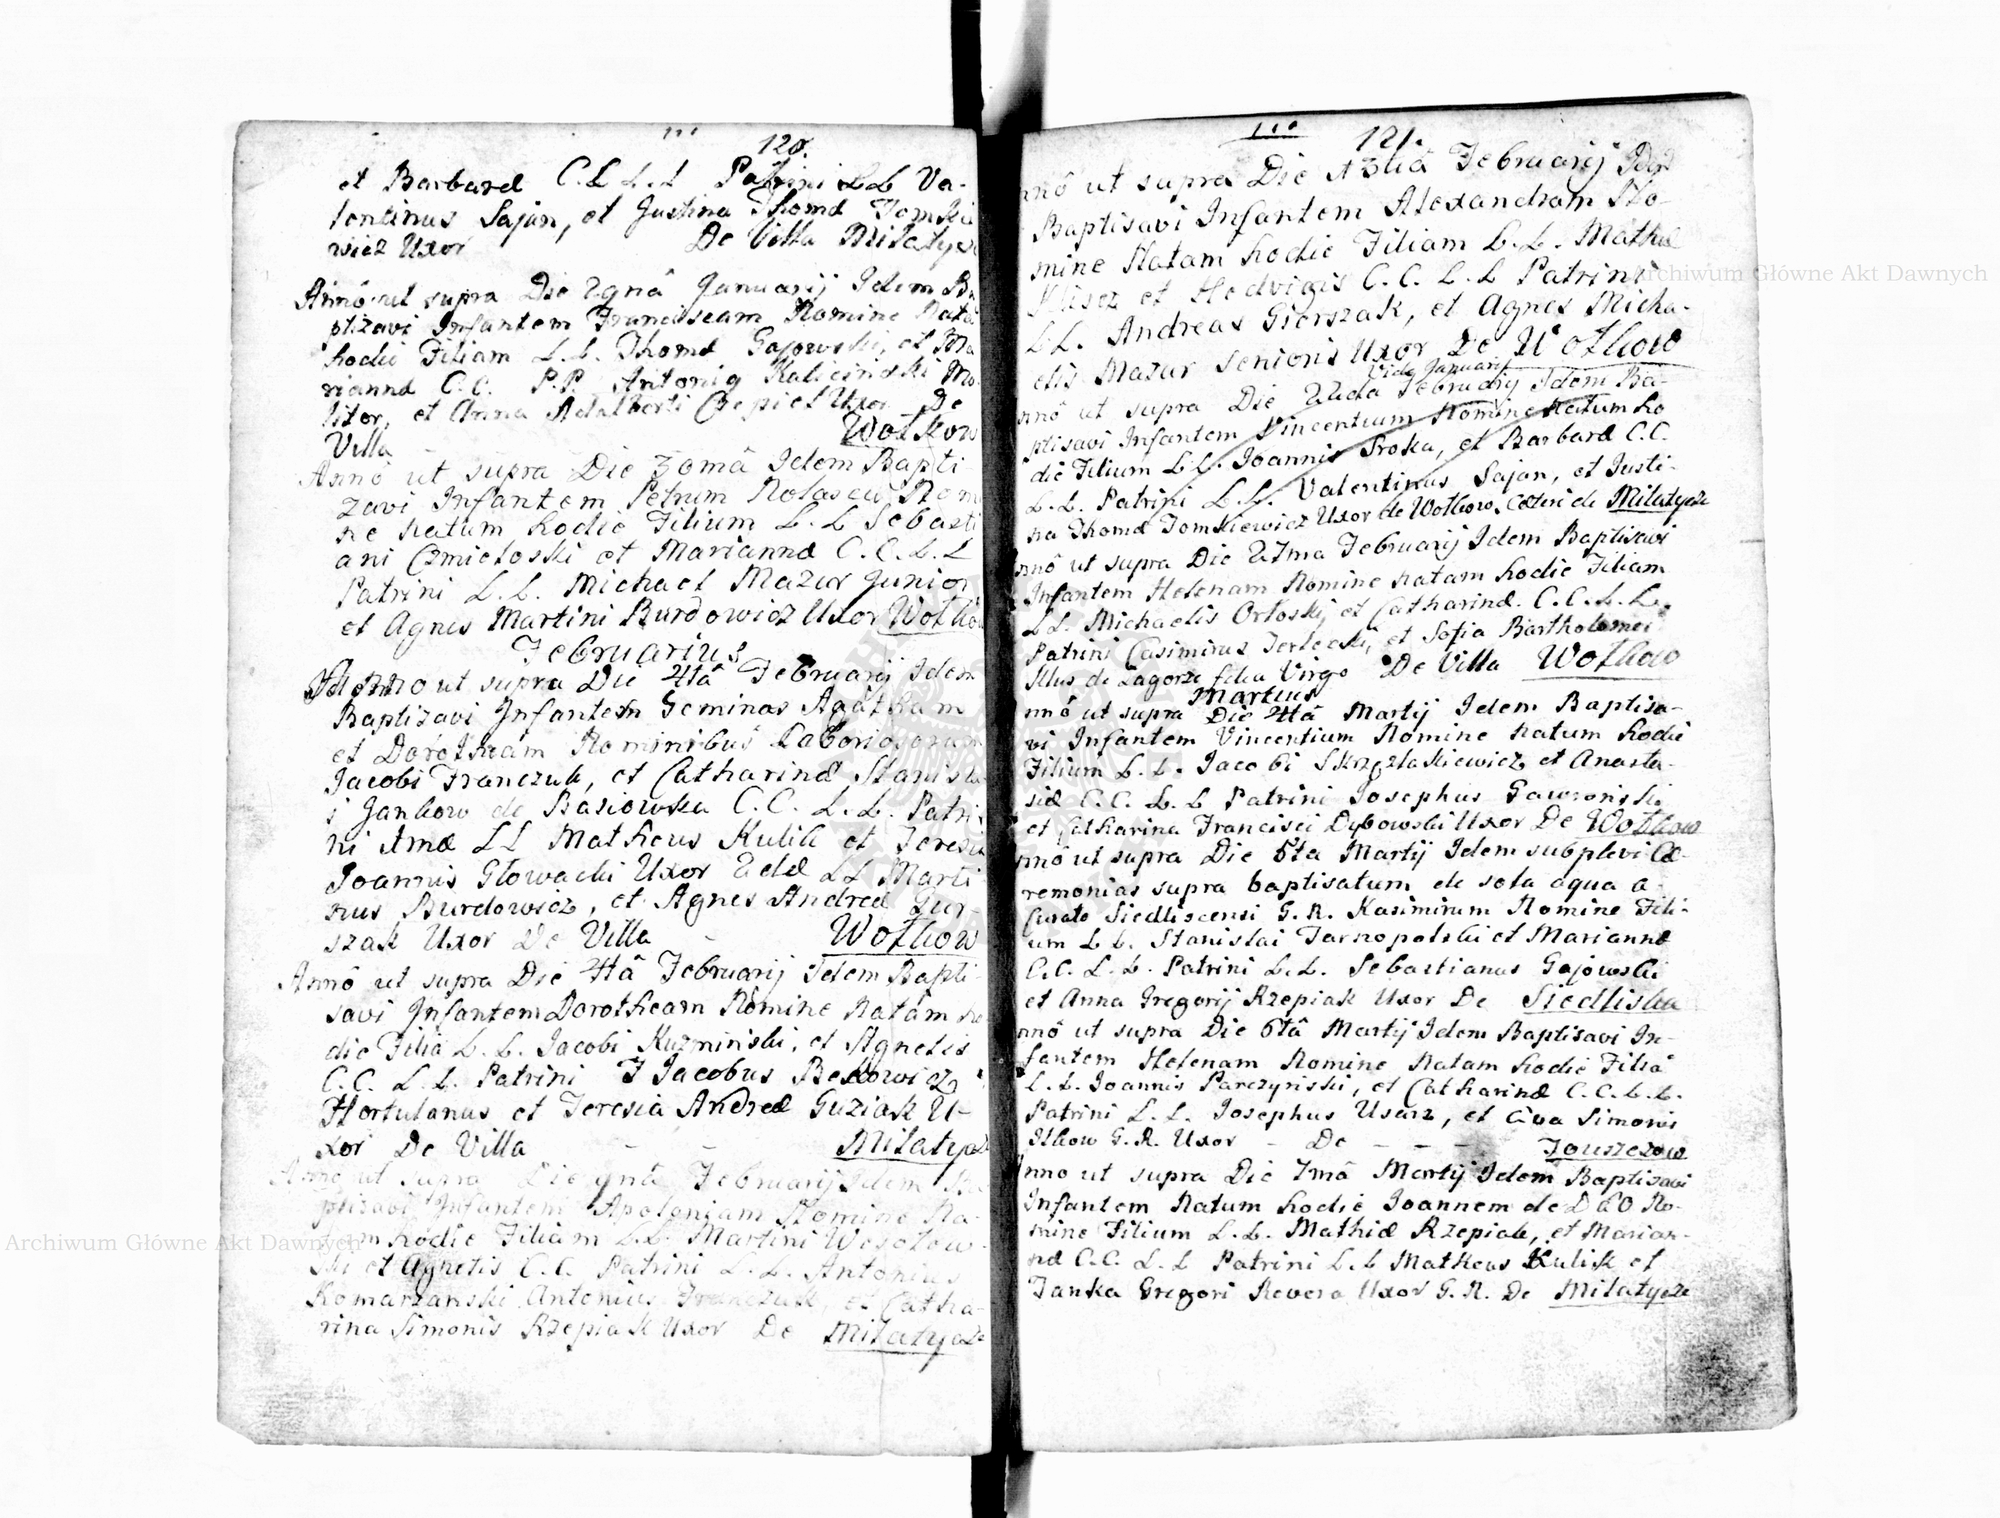 120.
et Barbaræ C.C. L.L Patrini LL Va-
lentinus Sajan, et Justina Thomæ Tomkie
wicz Uxor De Villa Milatycze
Annô ut supra Die 29nâ Januarij Idem Ba
ptizavi Infantem Franciscam Nomine Natã
hodie Filiam L.L. Thomæ Gajowski, et Ma
riannæ C.C. P.P. Antonig Kaliciński Mo-
litor, et Anna Adalberti Czepiel Uxor De
Villa Wołkow
Annô ut supra Die 30mâ Idem Bapti-
zavi Infantem Petrum Nolascu Nomi
ne natum hodie Filium L.L Sebasti
ani Czmieloski et Mariannæ C.C. L.L
Patrini L.L. Michael Mazur Junior
et Agnes Martini Burdowicz Uxor Wołkow
Februarius
Anno ut supra Die 4tâ Februarij Idem
Baptizavi Infantem Geminas Agatham
et Dorotheam Nominibus Laboriosorum
Jacobi Franczuk, et Catharinæ Stanisla
i Jankow de Basiowka C.C. L.L. Patri
ni 1mæ LL Matheus Kulik et Teresia
Joannis Głowacki Uxor 2dæ LL Marti
nus Burdowicz, et Agnes Andreæ Gier-
szak Uxor De Villa - Wołkow
Annô ut supra Die 4tâ Februarij Idem Bapti-
savi Infantem Dorotheam Nomine Natam ho
die Filiã L.L. Jacobi Kuzminski, et Agnetis
C.C. L.L. Patrini Jacobus Berowicz
Hortulanus et Teresia Andreæ Guziak U-
xor De Villa - - Milatycz
Anno ut supra Die 9nâ Februarij Idem Ba
ptisavi Infantem Apoloniam Nomine Na-
tam hodie Filiam L.L. Martini Wesołow-
ski et Agnetis C.C. Patrini L.L. Antonius
Komarzanski Antonius Franczuk, et Catha-
rina Simonis Rzepiak Uxor De Milatycze
121.
nnô ut supra Die 13tia Februarij Idem
Baptisavi Infantem Alexandram No-
mine Natam hodie Filiam L.L. Mathæ
Klisez et Hedvigis C.C. L.L Patrini
LL. Andreas Gierszak, et Agnes Micha-
elis Mazur Senioris Uxor De Wołkow
Vide Januarij
nnô ut supra Die 22da Februarij Idem Ba-
ptisavi Infantem Vincentium Nomine Natum ho
die Filium L.L. Joannis Sroka, et Barbaræ C.C.
L.L. Patrini L.L. Valentinus Sajan, et Justi-
na Thomæ Tomkiewicz Uxor de Wołkow. Cæteri de Milatycze
nnô ut supra Die 27ma Februarij Idem Baptisavi
Infantem Helenam Nomine natam hodie Filiam
LL. Michaelis Orłoski, et Catharinæ. C.C. L.L.
Patrini Casimirus Terlecki, et Sofia Bartholomei
filia Virgo De Villa Wołkow
Martius
nnô ut supra Die 4tâ Martij Idem Baptisa-
vi Infantem Vincentium Nomine natum hodie
Filium L.L. Jacobi Skrzzlakiewicz et Anasta-
siæ C.C. L.L Patrini Josephus Gawronski
et Catharina Francisci Dybowski Uxor De Wołkow
nnô ut supra Die 5ta Martij Idem suplevi Cæ-
remonias supra baptisatum de sola aqua a-
Curato Siedliscensi G.R. Kasimirum Nomine Fili-
um L.L. Stanislai Tarnopolski et Mariannæ
C.C. L.L. Patrini L.L. Sebastianus Gajowski
et Anna Gregorij Rzepiak Uxor De Siedliska
nnô ut supra Die 6tâ Martij Idem Baptisavi In-
fantem Helenam Nomine Natam hodie Filiã
L.L. Joannis Parczynski, et Catharinæ C.C.L.L.
Patrini L.L. Josephus Usarz, et Eva Simonis
Ilkow G.R. Uxor - De - - - Touszczow
nno ut supra Die 7mâ Martij Idem Baptisavi
Infantem Natum hodie Joannem de DEO No-
mine Filium L.L. Mathiæ Rzepiak, et Marian-
næ C.C. L.L Patrini L.L Matheus Kulik et
Tanka Gregori Revera Uxor G.R. De Milatycze
Archiwum Główne Akt Dawnych
Archiwum Główne Akt Dawnych